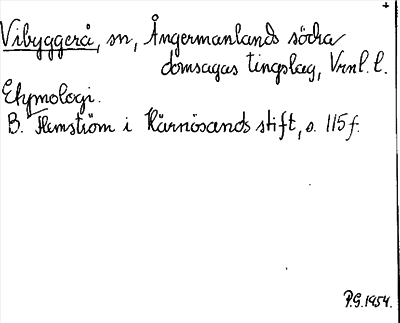 Vibyggerå, sn, Ångermanlands södra
domsagas tingslag, Vrnl. l.
Etymologi.
B. Hemström i Härnösands stift, s. 115 f.
P.G. 1954.